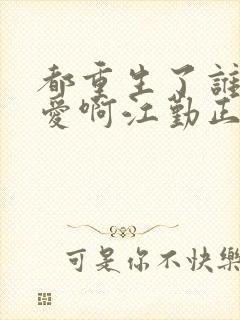 都重生了誰
愛啊江勤正
可是你不快樂